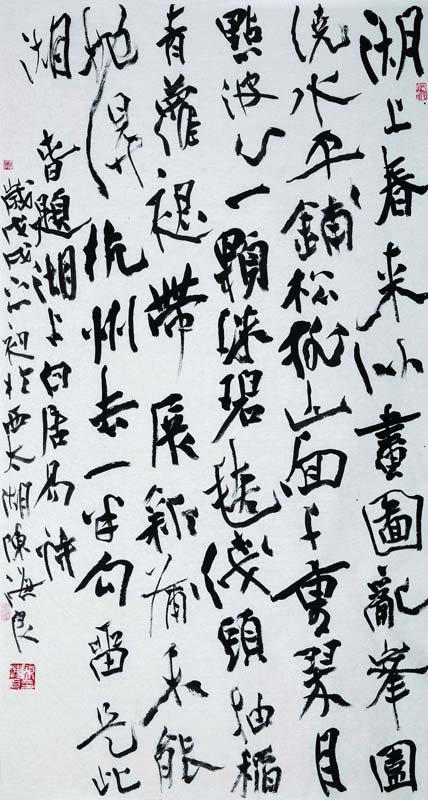 湖上春来似畫圖亂峯圍
繞水平鋪松排山面千重翠月
點波心一顆珠碧毯綫頭抽稻
青蘿裙帶展新蒲未能
抛得杭州去一半勾留是此
湖 春題湖上白居易詩
歲戊戌初於西太湖陳海良